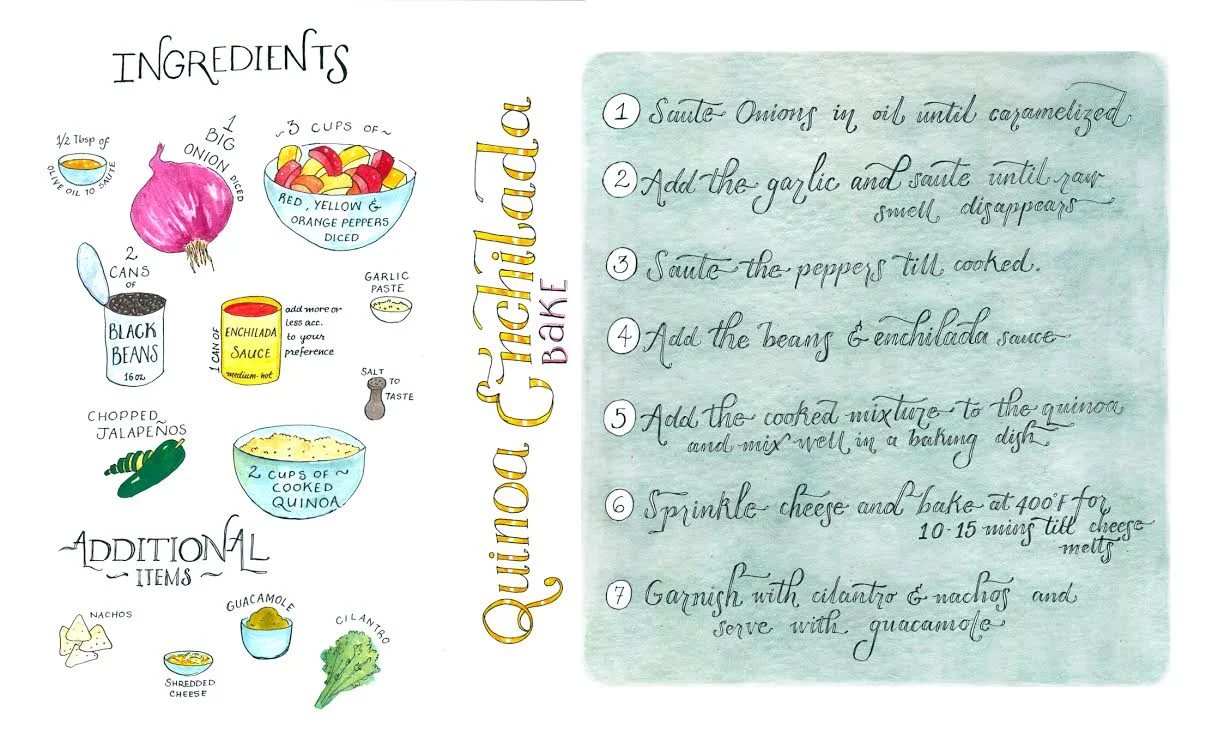 INGREDIENTS
1/2 Tbsp of
OLIVE OIL TO SAUTÉ
1
BIG
ONION
DICED
~3 CUPS OF~
RED, YELLOW &
ORANGE PEPPERS
DICED
2
CANS
OF
BLACK
BEANS
16 oz
1 CAN OF
ENCHILADA
SAUCE
medium-hot
add more or
less acc.
to your
preference
GARLIC
PASTE
SALT
TO
TASTE
CHOPPED
JALAPEÑOS
2 CUPS OF ~
COOKED
QUINOA
~ADDITIONAL
~ ITEMS ~
NACHOS
GUACAMOLE
CILANTRO
SHREDDED
CHEESE
Quinoa Enchilada
BAKE
1 Saute Onions in oil until caramelized
2 Add the garlic and saute until raw
smell disappears
3 Saute the peppers till cooked.
4 Add the beans & enchilada sauce
5 Add the cooked mixture to the quinoa
and mix well in a baking dish
6 Sprinkle cheese and bake at 400°F for
10-15 mins till cheese
melts
7 Garnish with cilantro & nachos and
serve with guacamole